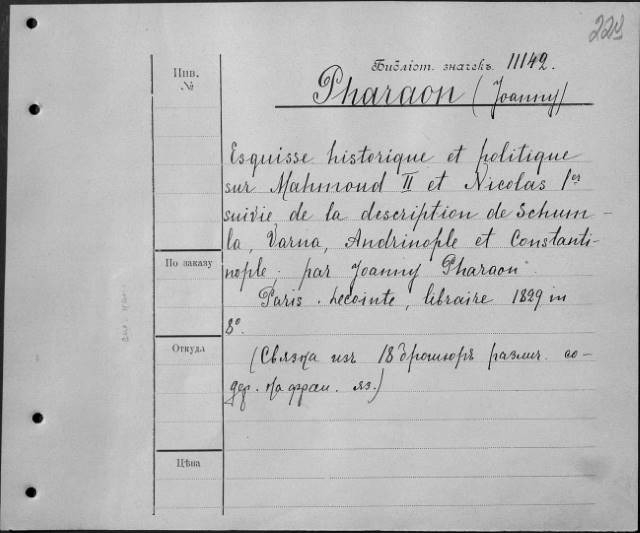 229
Библіот. значекъ. 11142.
Инв.
№
Pharaon (Joanny)
Esquisse historique et politique
sur Mahmoud II et Nicolas 1er
suivie de la description de Schum-
la, Varna, Andrinople et Constanti-
По заказу
nople; par Joanny Pharaon.
Paris. Lecointe, libraire 1829 in
8°.
Откуда
(Связка изъ 18 брошюръ различ. со-
дер. на фран. яз.)
Цѣна